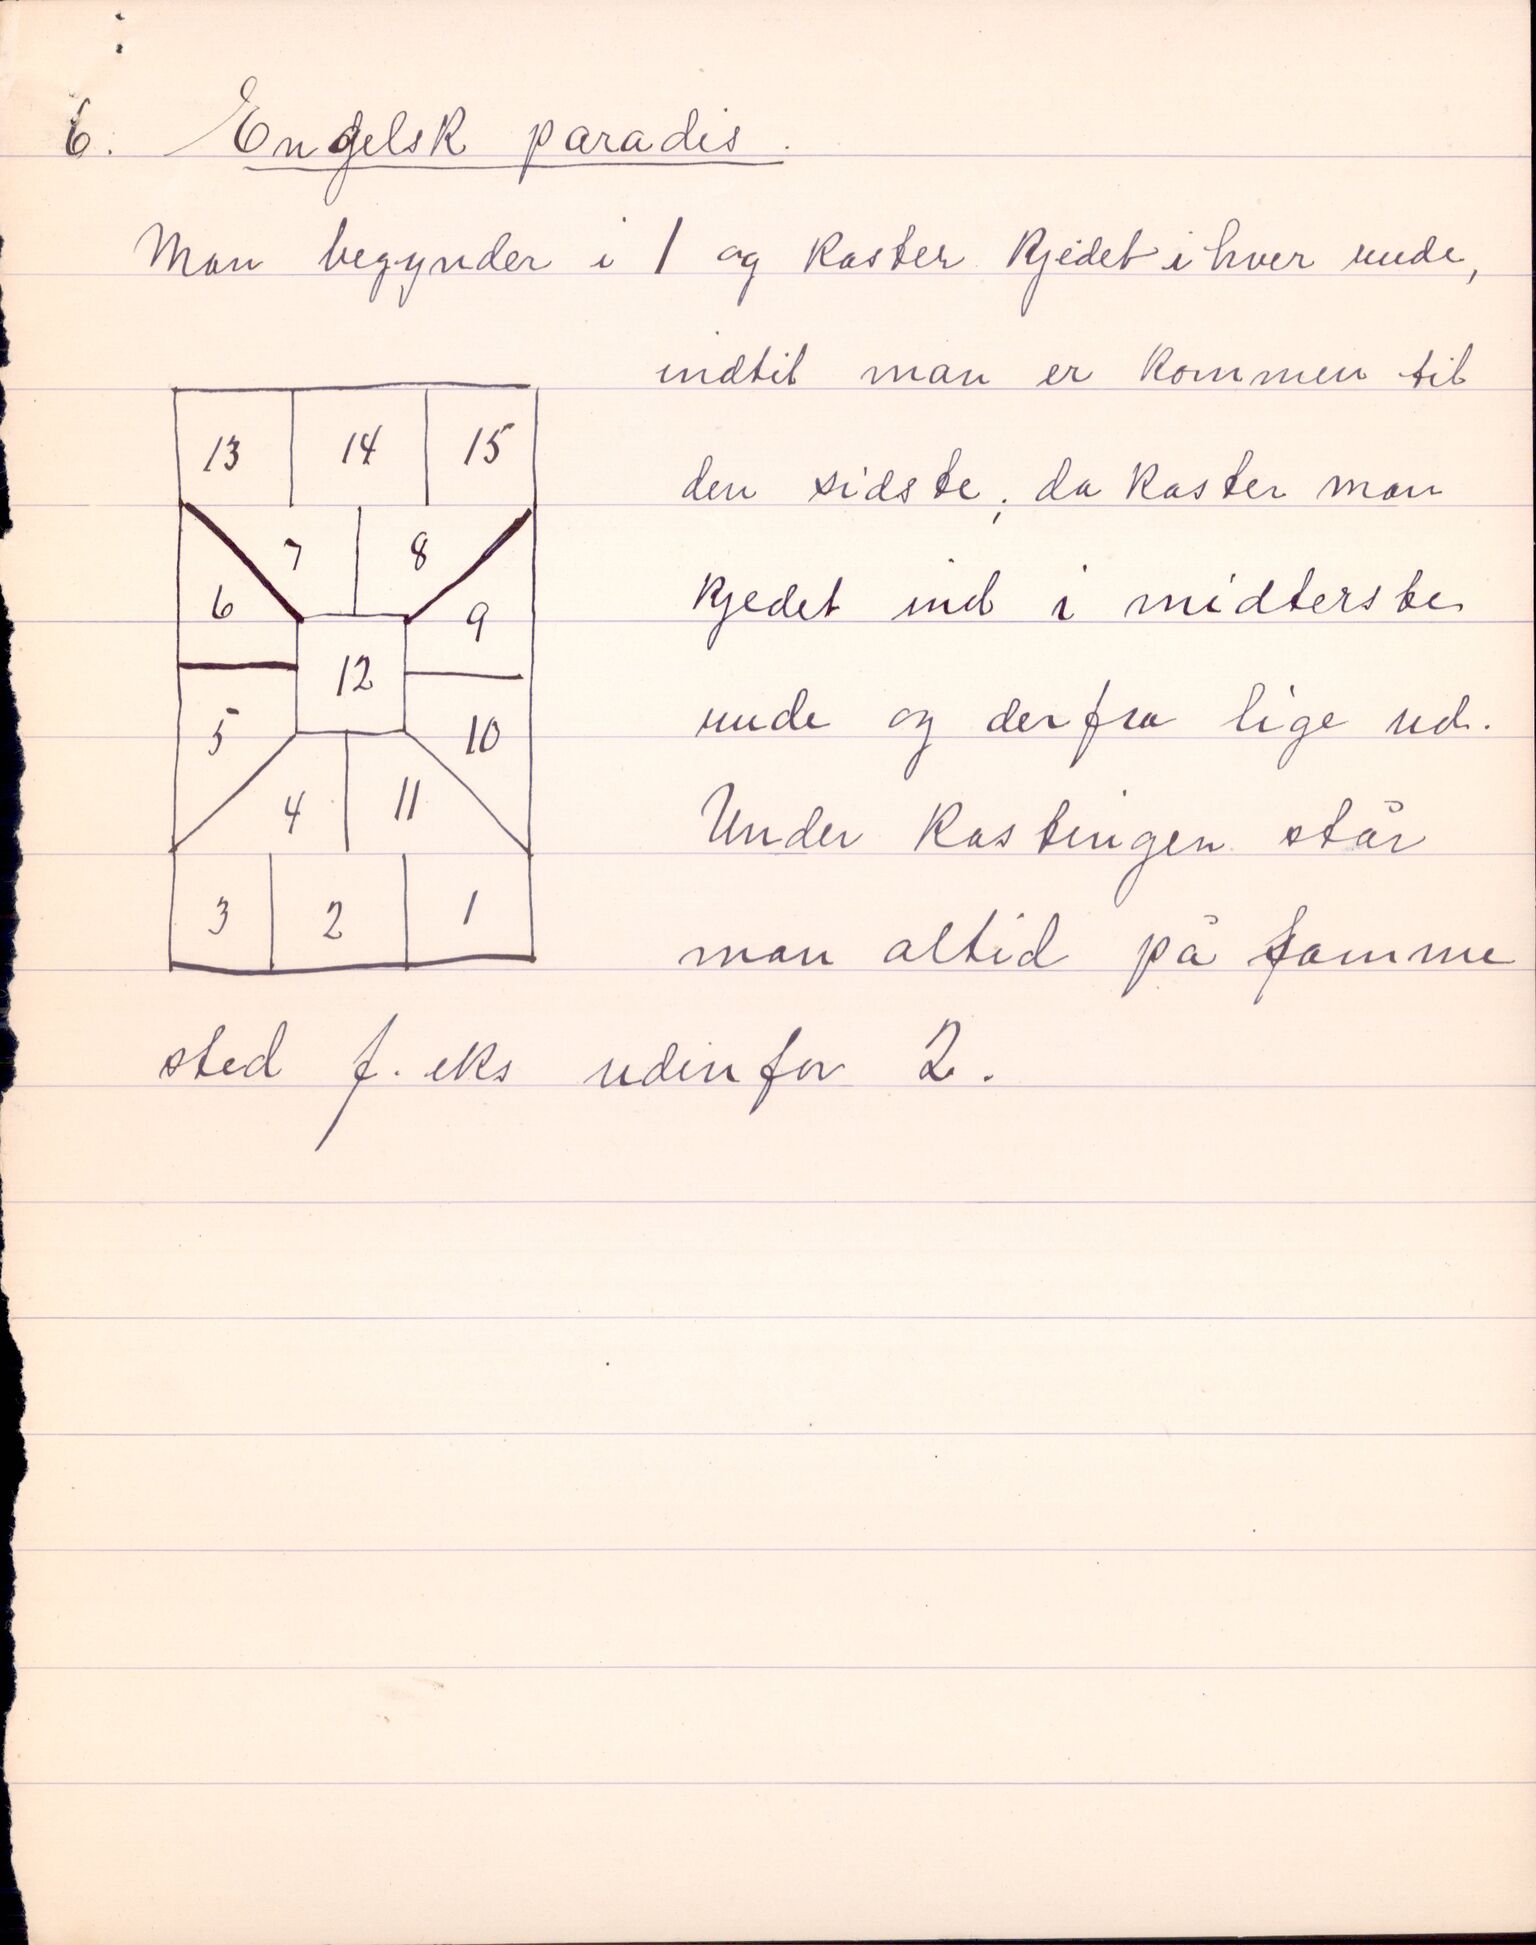 6. Engelsk paradis.
Man begynder i 1 og kaster kjedet i hver rude,
indtil man er kommen til
den sidste, da kaster man
kjedet ind i midterste
rude og derfra lige ud.
Under kastingen står
man altid på samme
sted f. eks udenfor 2.
13 14 15
7 8
6 9
12
5 10
4 11
3 2 1